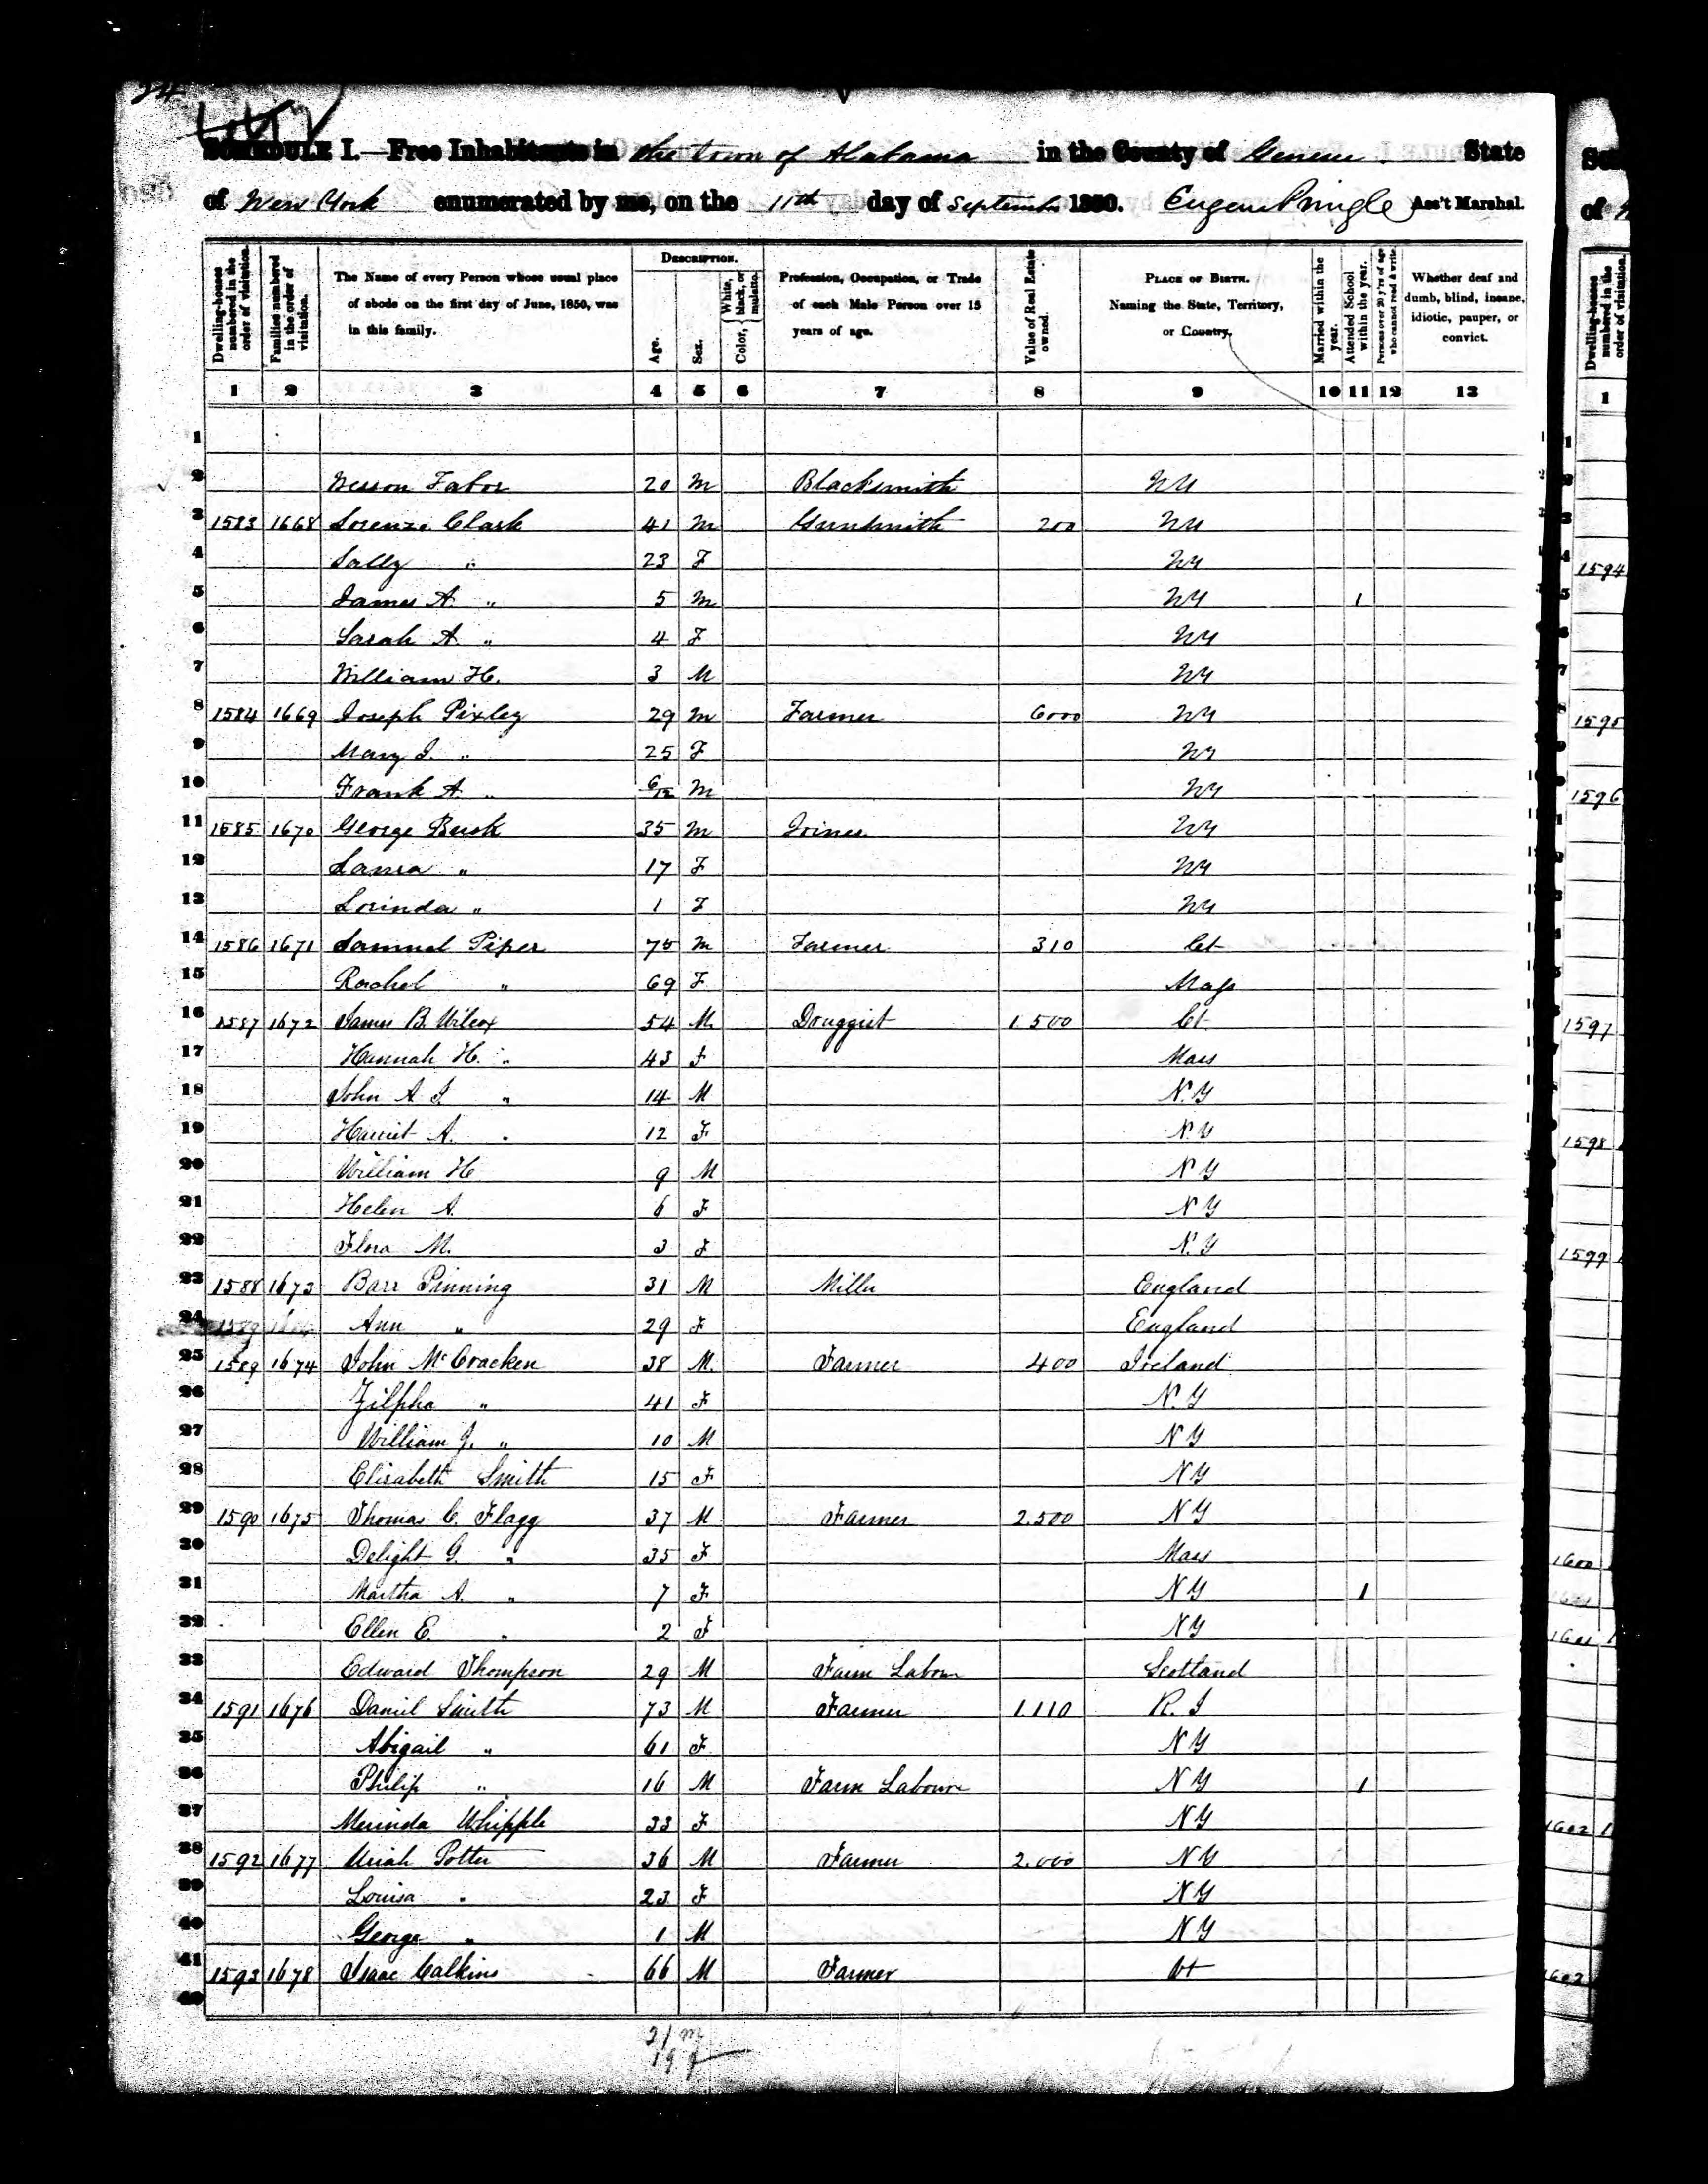 24
SCHEDULE I.—Free Inhabitants in the town of Alabama in the County of Genesee State
of New York enumerated by me, on the 11th day of September 1850. Eugene Pringle Ass't Marshal.
Dwelling-houses numbered in the order of visitation.
Families numbered in the order of visitation.
The Name of every Person whose usual place of abode on the first day of June, 1850, was in this family.
Description.
Age.
Sex.
Color, White, black, or mulatto.
Profession, Occupation, or Trade of each Male Person over 15 years of age.
Value of Real Estate owned.
Place of Birth. Naming the State, Territory, or Country.
Married within the year.
Attended School within the year.
Persons over 20 y'rs of age who cannot read & write.
Whether deaf and dumb, blind, insane, idiotic, pauper, or convict.
1 2 3 4 5 6 7 8 9 10 11 12 13
1
2 Tabor 20 M Blacksmith NY
3 1583 1668 Lorenzo Clark 41 M Gunsmith 200 NY
4 Sally " 23 F NY
5 James A. " 5 M NY 1
6 Sarah A. " 4 F NY
7 William H. 3 M NY
8 1584 1669 Joseph Pixley 29 M Farmer 6000 NY
9 Mary J. " 25 F NY
10 Frank A. " 6/12 M NY
11 1585 1670 George Bush 35 M Joiner NY
12 Laura " 17 F NY
13 Lorinda " 1 F NY
14 1586 1671 Samuel Piper 75 M Farmer 310 Ct
15 Rachel " 69 F Mass
16 1587 1672 James B. Wilcox 54 M. Druggist 1500 Ct.
17 Hannah H. " 43 F Mass
18 John A J. " 14 M N.Y
19 Harriet A. " 12 F N.Y
20 William H 9 M N Y
21 Helen A. 6 F N Y
22 Flora M. 3 F N.Y
23 1588 1673 Barr Pinning 31 M Miller England
24 1589 Ann " 29 F England
25 1589 1674 John McCracken 38 M. Farmer 400 Ireland
26 Zilpha " 41 F N.Y
27 William J. " 10 M N Y
28 Elisabeth Smith 15 F N Y
29 1590 1675 Thomas C. Flagg 37 M Farmer 2.500 N Y
30 Delight G. " 35 F Mass
31 Martha A. " 7 F N Y 1
32 Ellen E. " 2 F N Y
33 Edward Thompson 29 M Farm Labour Scotland
34 1591 1676 Daniel Smith 73 M Farmer 1.110 R. I
35 Abigail " 61 F N Y
36 Philip " 16 M Farm Labour N Y 1
37 Merinda Whipple 33 F N Y
38 1592 1677 Uriah Potter 36 M Farmer 2.000 N Y
39 Louisa " 23 F N Y
40 George " 1 M N Y
41 1593 1678 Isaac Calkins 66 M Farmer
42
21 m
19 f
1
1594
1595
1596
1597
1598
1599
1600
1601
1602